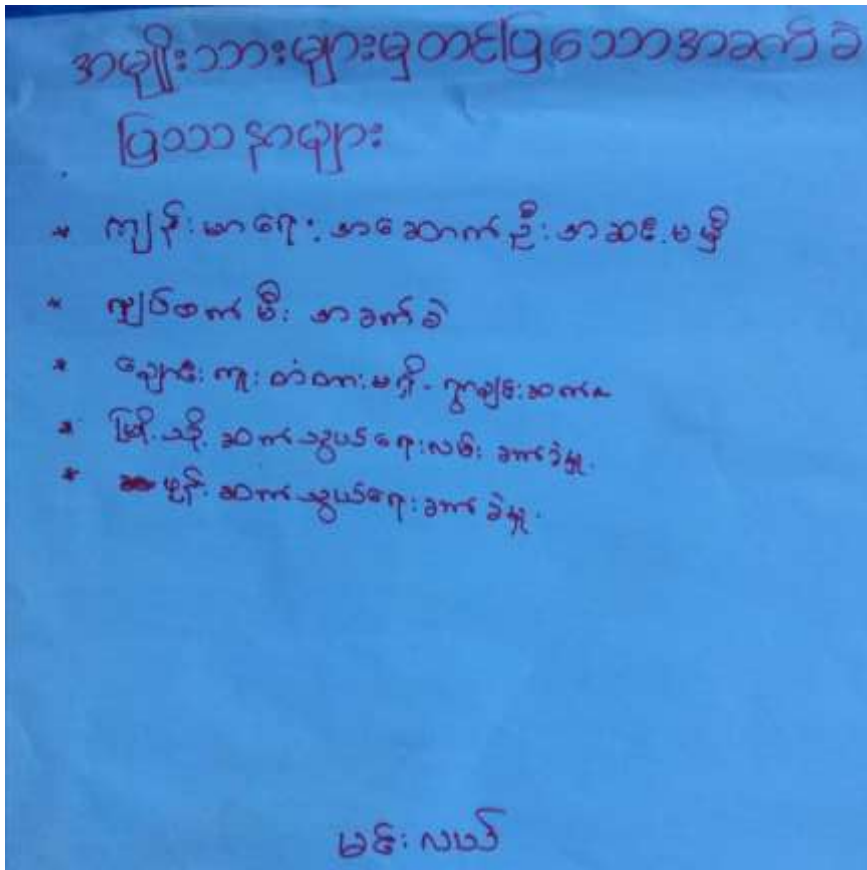 အမျိုးသားများမှတင်ပြသောအခက်ခဲ
ပြဿနာများ
* ကျန်းမာရေး အဆောက်ဦး အဆင့်မရှိ
* လျှပ်စက်မီး အခက်ခဲ
* ချောင်းကူးတံတားမရှိ - ရွာချင်းဆက်
* မြို့သို့ ဆက်သွယ်ရေးလမ်း ခက်ခဲမှု.
* ဖုန်းဆက်သွယ်ရေးခက်ခဲမှု.
မင်းလယ်